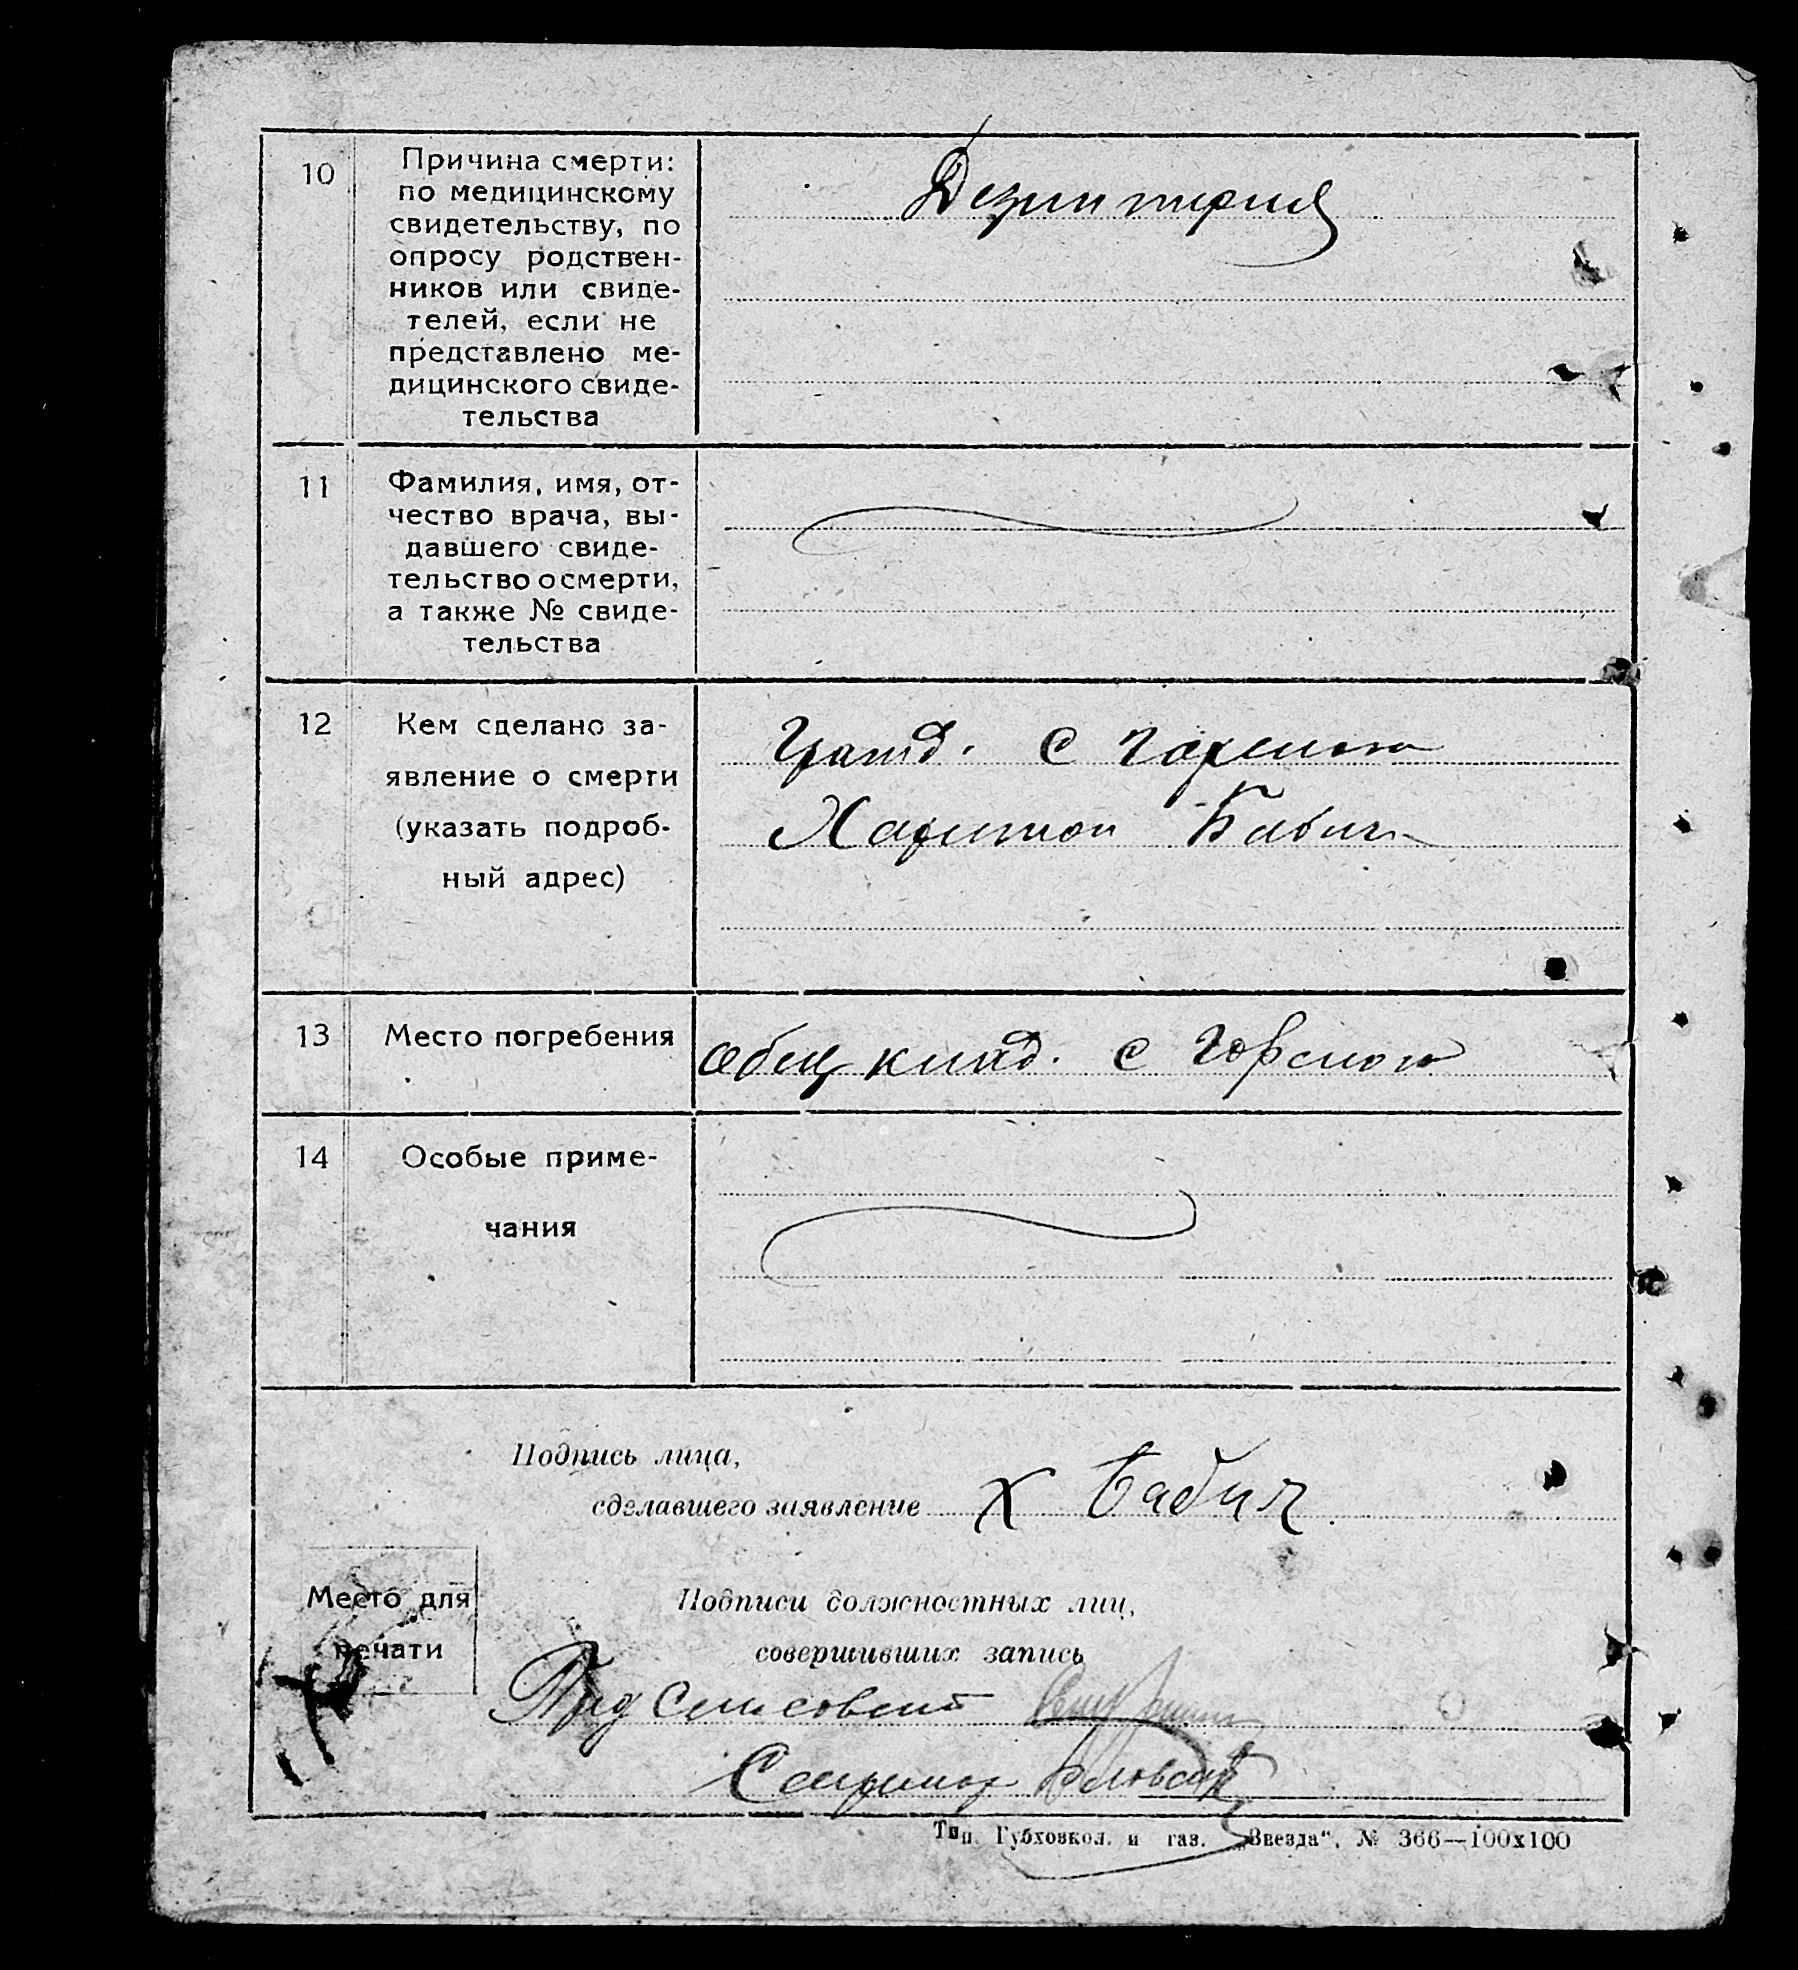 10
Причина смерти:
по медицинскому
свидетельству, по
опросу родствен-
ников или свиде-
телей, если не
представлено ме-
дицинского свиде-
тельства
Дезинтерия
11
Фамилия, имя, от-
чество врача, вы-
давшего свиде-
тельство о смерти,
а также № свиде-
тельства
12
Кем сделано за-
явление о смерти
(указать подроб-
ный адрес)
Гражд. с
Харитон Бабич
13
Место погребения
общ кладб. с
14
Особые приме-
чания
Подпись лица,
сделавшего заявление Х Бабич
Место для
печати
Подписи должностных лиц,
совершивших запись
Пред
Секретарь
Тип. Губховкол. и газ. „Звезда“. № 366—100х100